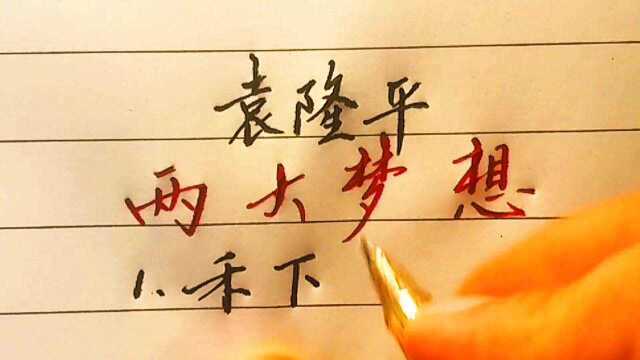 袁隆平
两大梦想
1.禾下